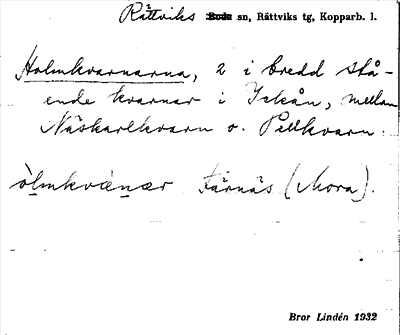 Rättviks ~~Boda~~ sn, Rättviks tg, Kopparb. l.
Holmkvarnarna, 2 i bredd stå-
ende kvarnar i Ickån, mellan
Näskarlkvarn o. Pellkvarn.
òlmkvænær Färnäs (Mora).
Bror Lindén 1932